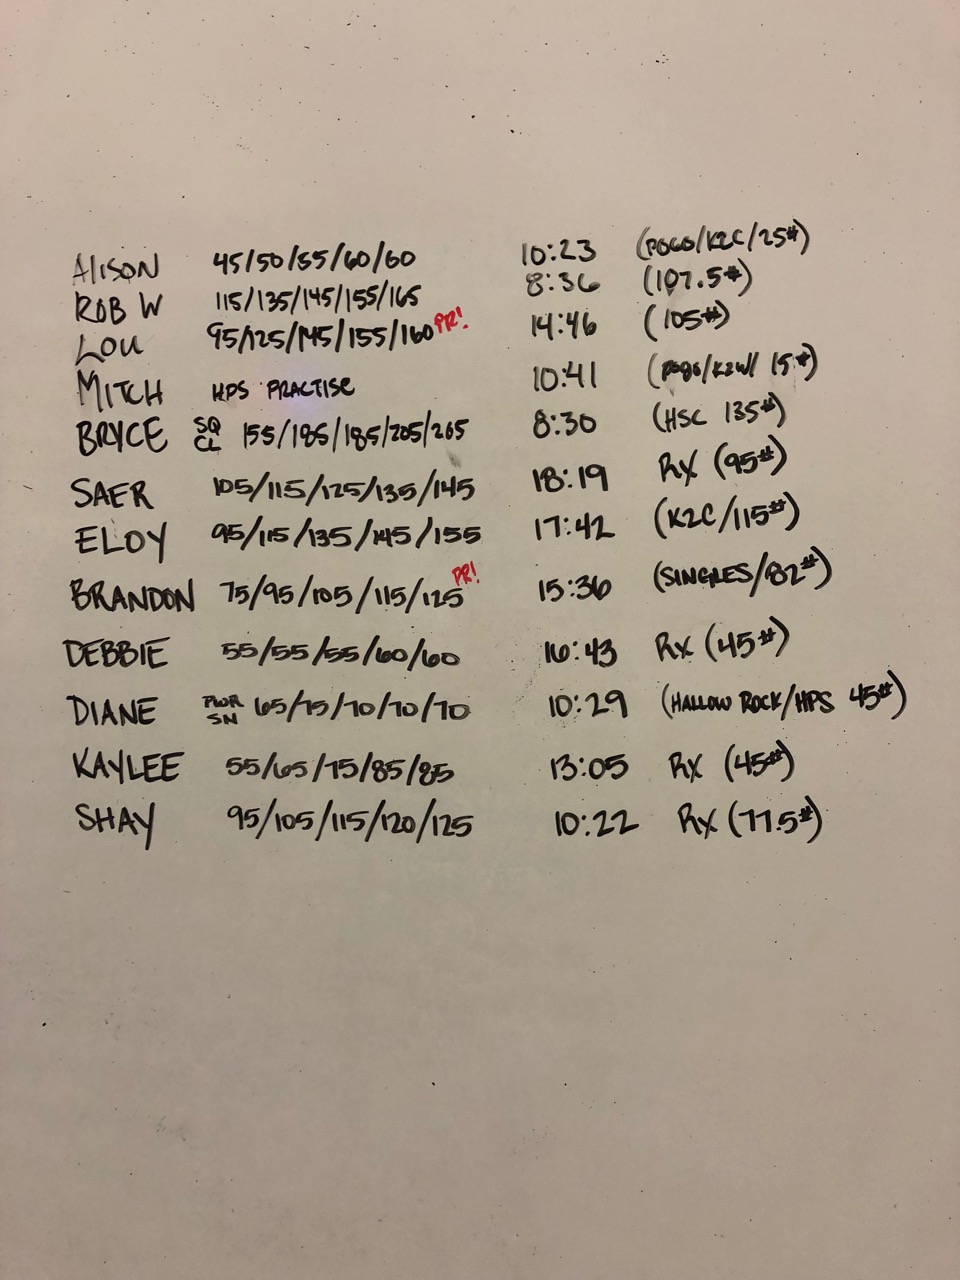 ALISON 45/50/55/60/60 10:23 (POGO/K2C/25#)
ROB W 115/135/145/155/165 8:36 (107.5#)
LOU 95/125/145/155/160 PR! 14:46 (105#)
MITCH HPS PRACTISE 10:41 (POGO/K2W/ 15#)
BRYCE SQ CL 155/185/185/205/205 8:30 (HSC 135#)
SAER 105/115/125/135/145 18:19 RX (95#)
ELOY 95/115/135/145/155 17:42 (K2C/115#)
BRANDON 75/95/105/115/125 PR! 15:36 (SINGLES/82#)
DEBBIE 55/55/55/60/60 16:43 RX (45#)
DIANE PWR SN 65/75/70/70/70 10:29 (HALLOW ROCK/HPS 45#)
KAYLEE 55/65/75/85/85 13:05 RX (45#)
SHAY 95/105/115/120/125 10:22 RX (77.5#)